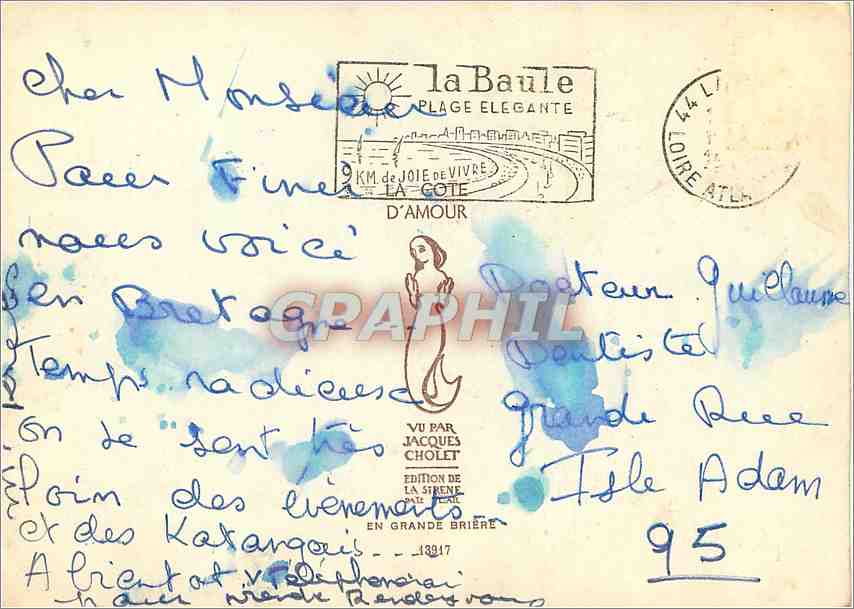 Cher Monsieur
Pour Finir
nous voici
en Bretagne
Temps radieuse
on se sent très
loin des évènements
et des Katangais
A bientot Téléphonerai
pour prendre Rendez vous
la Baule
PLAGE ELEGANTE
9 KM de JOIE DE VIVRE
44 L
LOIRE ATL
LA COTE
D'AMOUR
CPAPHIL
VU PAR
JACQUES
CHOLET
EDITION DE
LA SIRENE
EN GRANDE BRIÈRE
13917
Docteur Guillaume
Dentiste
grande Rue
Isle Adam
95